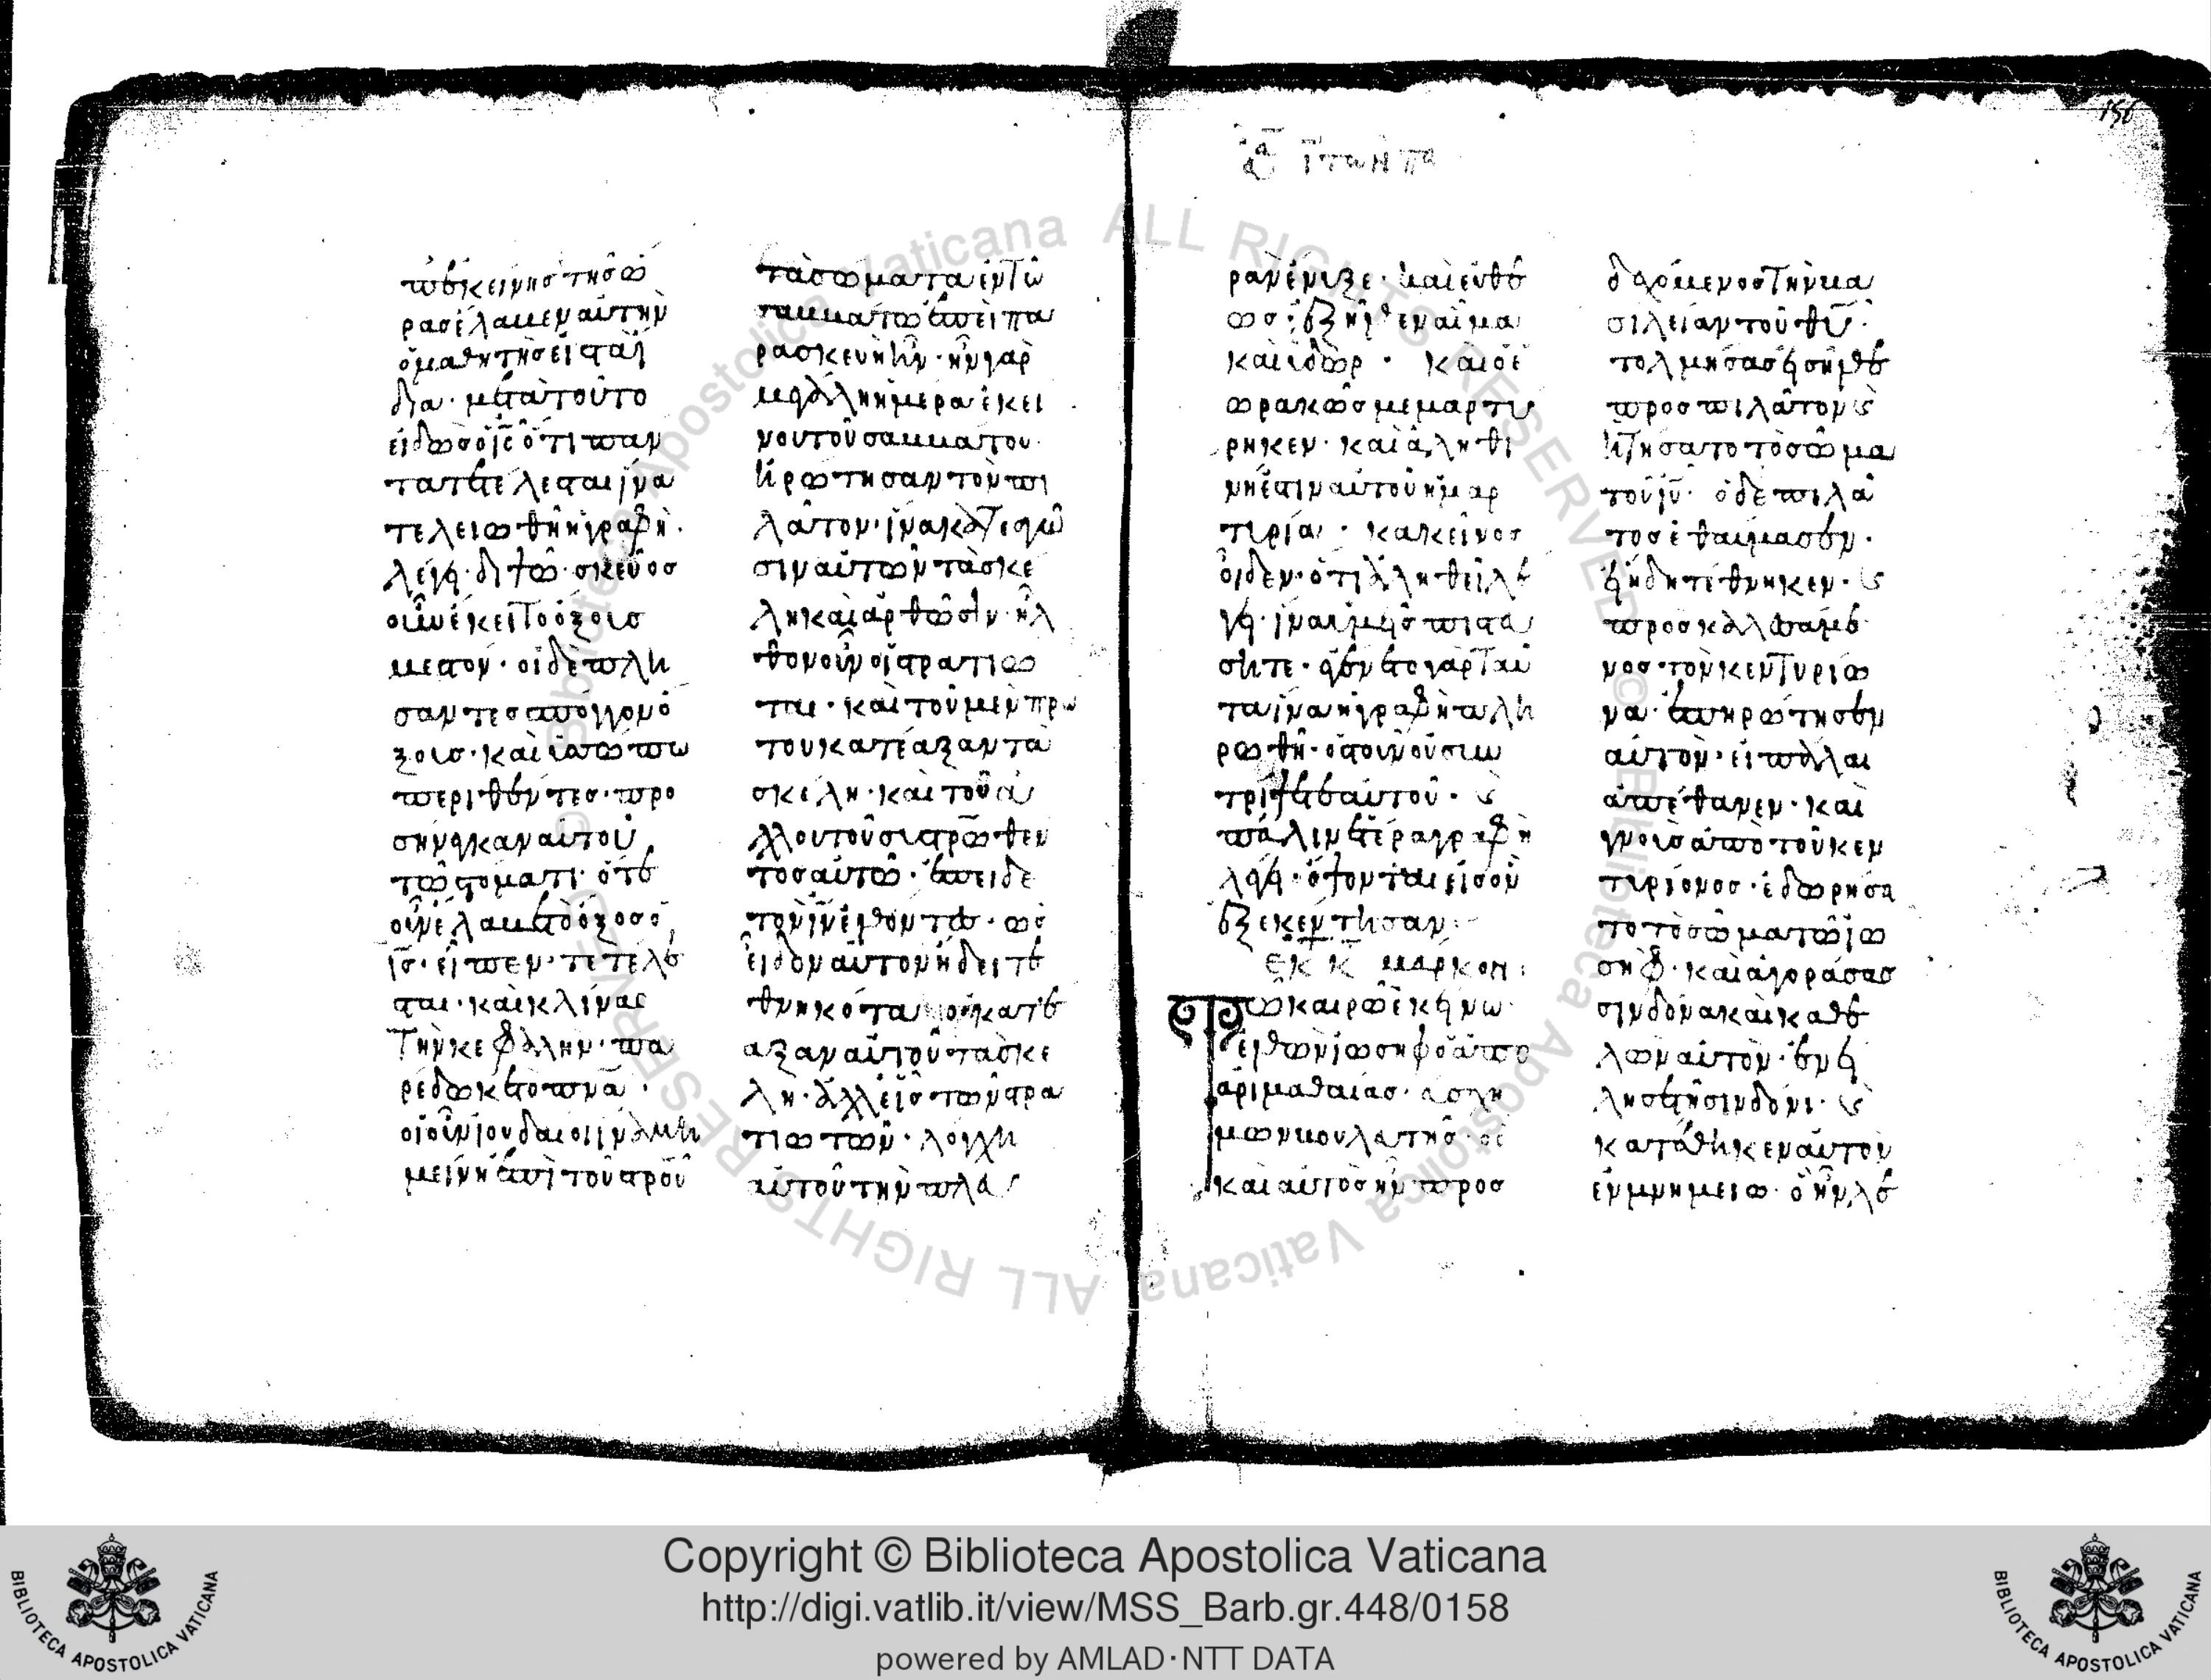 π᾽ ἐκείνης τῆς ὥ
ρας ἔλαβεν αὐτὴν
ὁ μαθητὴς εἰς τὰ ἴ
δια· μετὰ τοῦτο
εἰδὼς ὁ ις ὅτι πάν
τα τετέλεσται ἵνα
τελειωθῆ ἡ γραφὴ·
λέγει· διψῶ· σκεῦος
οὖν ἔκειτο ὄξους
μεστον· οἱ δὲ πλή
σαντες σπόγγον ὄ
ξους· καὶ ὑσσώπω
περιθέντες· προ
σήνεγκαν αὐτοῦ
τῶ στόματι· ὅτε
οὖν ἔλαβε τὸ ὄξος ὁ
ις· εἶπεν· τετέλε
σται· καὶ κλίνας
τὴν κεφαλὴν· πα
ρέδωκε τὸ πνα·
οἱ οὖν ἰουδαῖοι ἵνα μὴ
μείνη ἐπὶ τοῦ σταυροῦ
τὰ σώματα ἐν τῶ
σαββάτω ἐπεὶ πα
ρασκευὴ ἦν· ἦν γὰρ
μεγάλη ἡ ἡμέρα ἐκεί
νου τοῦ σαββάτου·
ἠρώτησαν τὸν πι
λάτον· ἵνα κατεαγῶ
σιν αὐτῶν τὰ σκέ
λη καὶ ἀρθῶσιν· ἦλ
θον οὖν οἱ στρατιῶ
ται· καὶ τοῦ μὲν πρώ
του κατέαξαν τὰ
σκέλη· καὶ τοῦ ἄ
λλου τοῦ συσταυρωθέν
τος αὐτῶ· ἐπεὶ δὲ
τὸν ιν ἐλθόντες· ὡς
εἶδον αὐτὸν ἤδει τε
θνηκότα οὐ κατέ
αξαν αὐτοῦ τὰ σκέ
λη· ἀλλ᾽ εἷς τῶν στρα
τιωτῶν· λόγχη
αὐτοῦ τὴν πλευ
ρὰν ἔνυξε· καὶ εὐθέ
ως· ἐξῆλθεν αἷμα
καὶ ὕδωρ· καὶ ὁ ἑ
ωρακὼς μεμαρτύ
ρηκεν· καὶ ἀληθι
νή ἐστιν αὐτοῦ ἡ μαρ
τυρία· κακεῖνος
οἶδεν· ὅτι ἀληθεῖ λέ
γει· ἵνα ὑμεῖς πιστεύ
σητε· ἐγένετο γὰρ ταῦ
τα ἵνα ἡ γραφὴ πλη
ρωθῆ· ὀστοῦν οὐ συν
τριβήσεται αὐτοῦ· καὶ
πάλιν ἑτέρα γραφὴ
λέγει· ὄψονται εἰς ὃν
ἐξεκέντησαν·
ἐκ τ κ μάρκον:
Τῶ καιρῶ ἐκείνω·
ἐλθὼν ἰωσὴφ ὁ ἀπὸ
ἀριμαθαίας· εὐσχή
μων βουλευτής· ὃς
καὶ αὐτὸς ἦν προσ
δεχόμενος τὴν βα
σιλείαν τοῦ θυ·
τολμήσας εἰσῆλθε
πρὸς πιλάτον καὶ
ἠτήσατο τὸ σῶμα
τοῦ ιυ· ὁ δὲ πιλά
τος ἐθαύμασεν·
εἰ ἤδη τέθνηκεν· καὶ
προσκαλεσάμε
νος τὸν κεντυρίω
να· ἐπηρώτησεν
αὐτὸν· εἰ πάλαι
ἀπέθανεν· καὶ
γνοὺς ἀπὸ τοῦ κεν
τυρίονος· ἐδωρήσα
το τὸ σῶμα τῶ ἰω
σὴφ· καὶ ἀγοράσας
σινδόνα καὶ καθε
λὼν αὐτὸν· ἐνεί
λησε τῆ σινδόνι· καὶ
κατέθηκεν αὐτὸν
ἐν μνημείω· ὃ ἦν λε